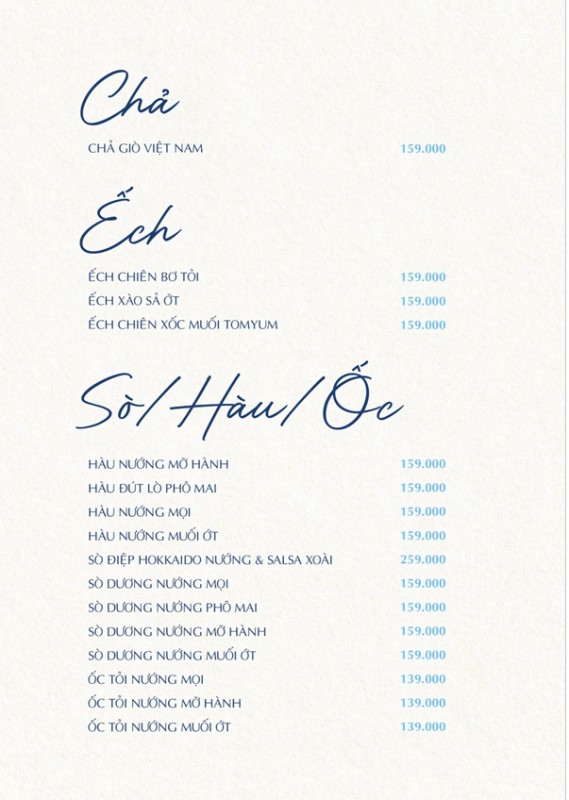 Chả
CHẢ GIÒ VIỆT NAM 159.000
Ếch
ẾCH CHIÊN BƠ TỎI 159.000
ẾCH XÀO SẢ ỚT 159.000
ẾCH CHIÊN XỐC MUỐI TOMYUM 159.000
Sò/Hàu/Ốc
HÀU NƯỚNG MỠ HÀNH 159.000
HÀU ĐÚT LÒ PHÔ MAI 159.000
HÀU NƯỚNG MỌI 159.000
HÀU NƯỚNG MUỐI ỚT 159.000
SÒ ĐIỆP HOKKAIDO NƯỚNG & SALSA XOÀI 259.000
SÒ DƯƠNG NƯỚNG MỌI 159.000
SÒ DƯƠNG NƯỚNG PHÔ MAI 159.000
SÒ DƯƠNG NƯỚNG MỠ HÀNH 159.000
SÒ DƯƠNG NƯỚNG MUỐI ỚT 159.000
ỐC TỎI NƯỚNG MỌI 139.000
ỐC TỎI NƯỚNG MỠ HÀNH 139.000
ỐC TỎI NƯỚNG MUỐI ỚT 139.000